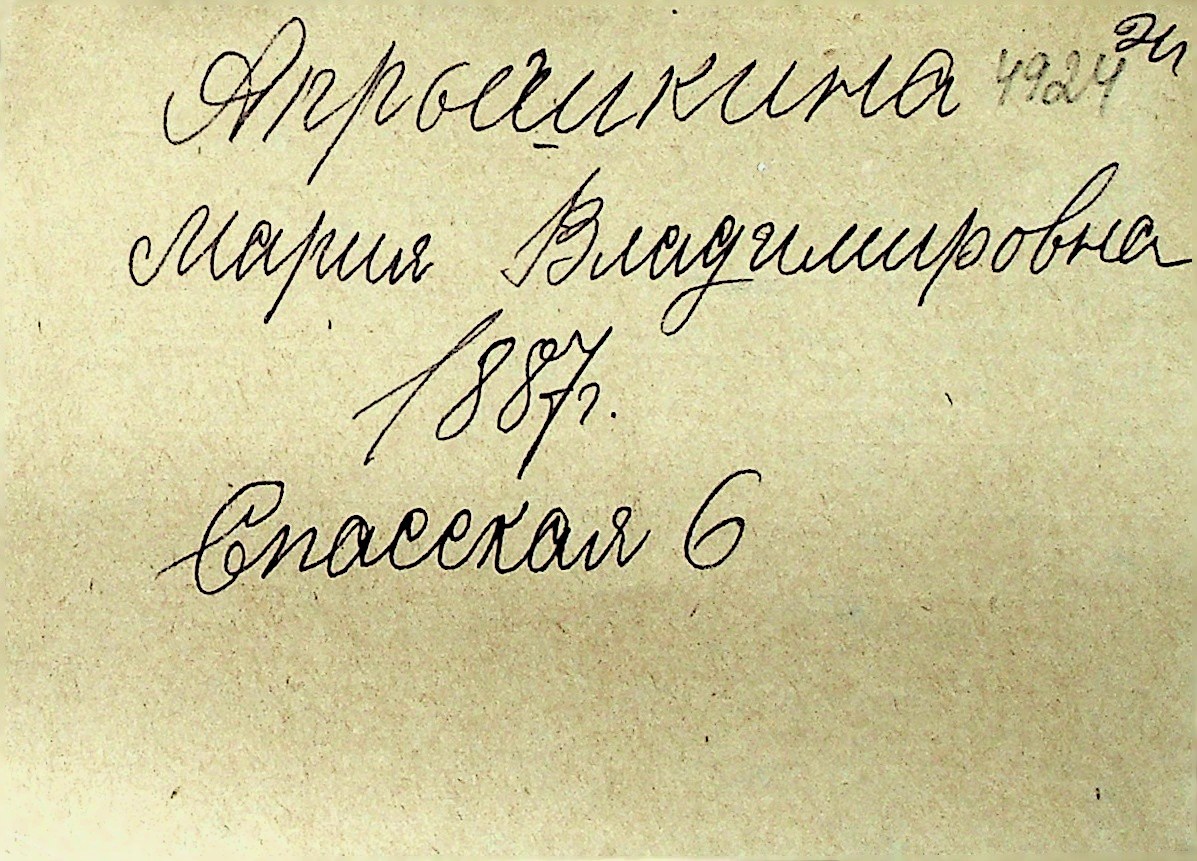 Апрышкина 4924
Мария Владимировна
1887г.
Спасская 6